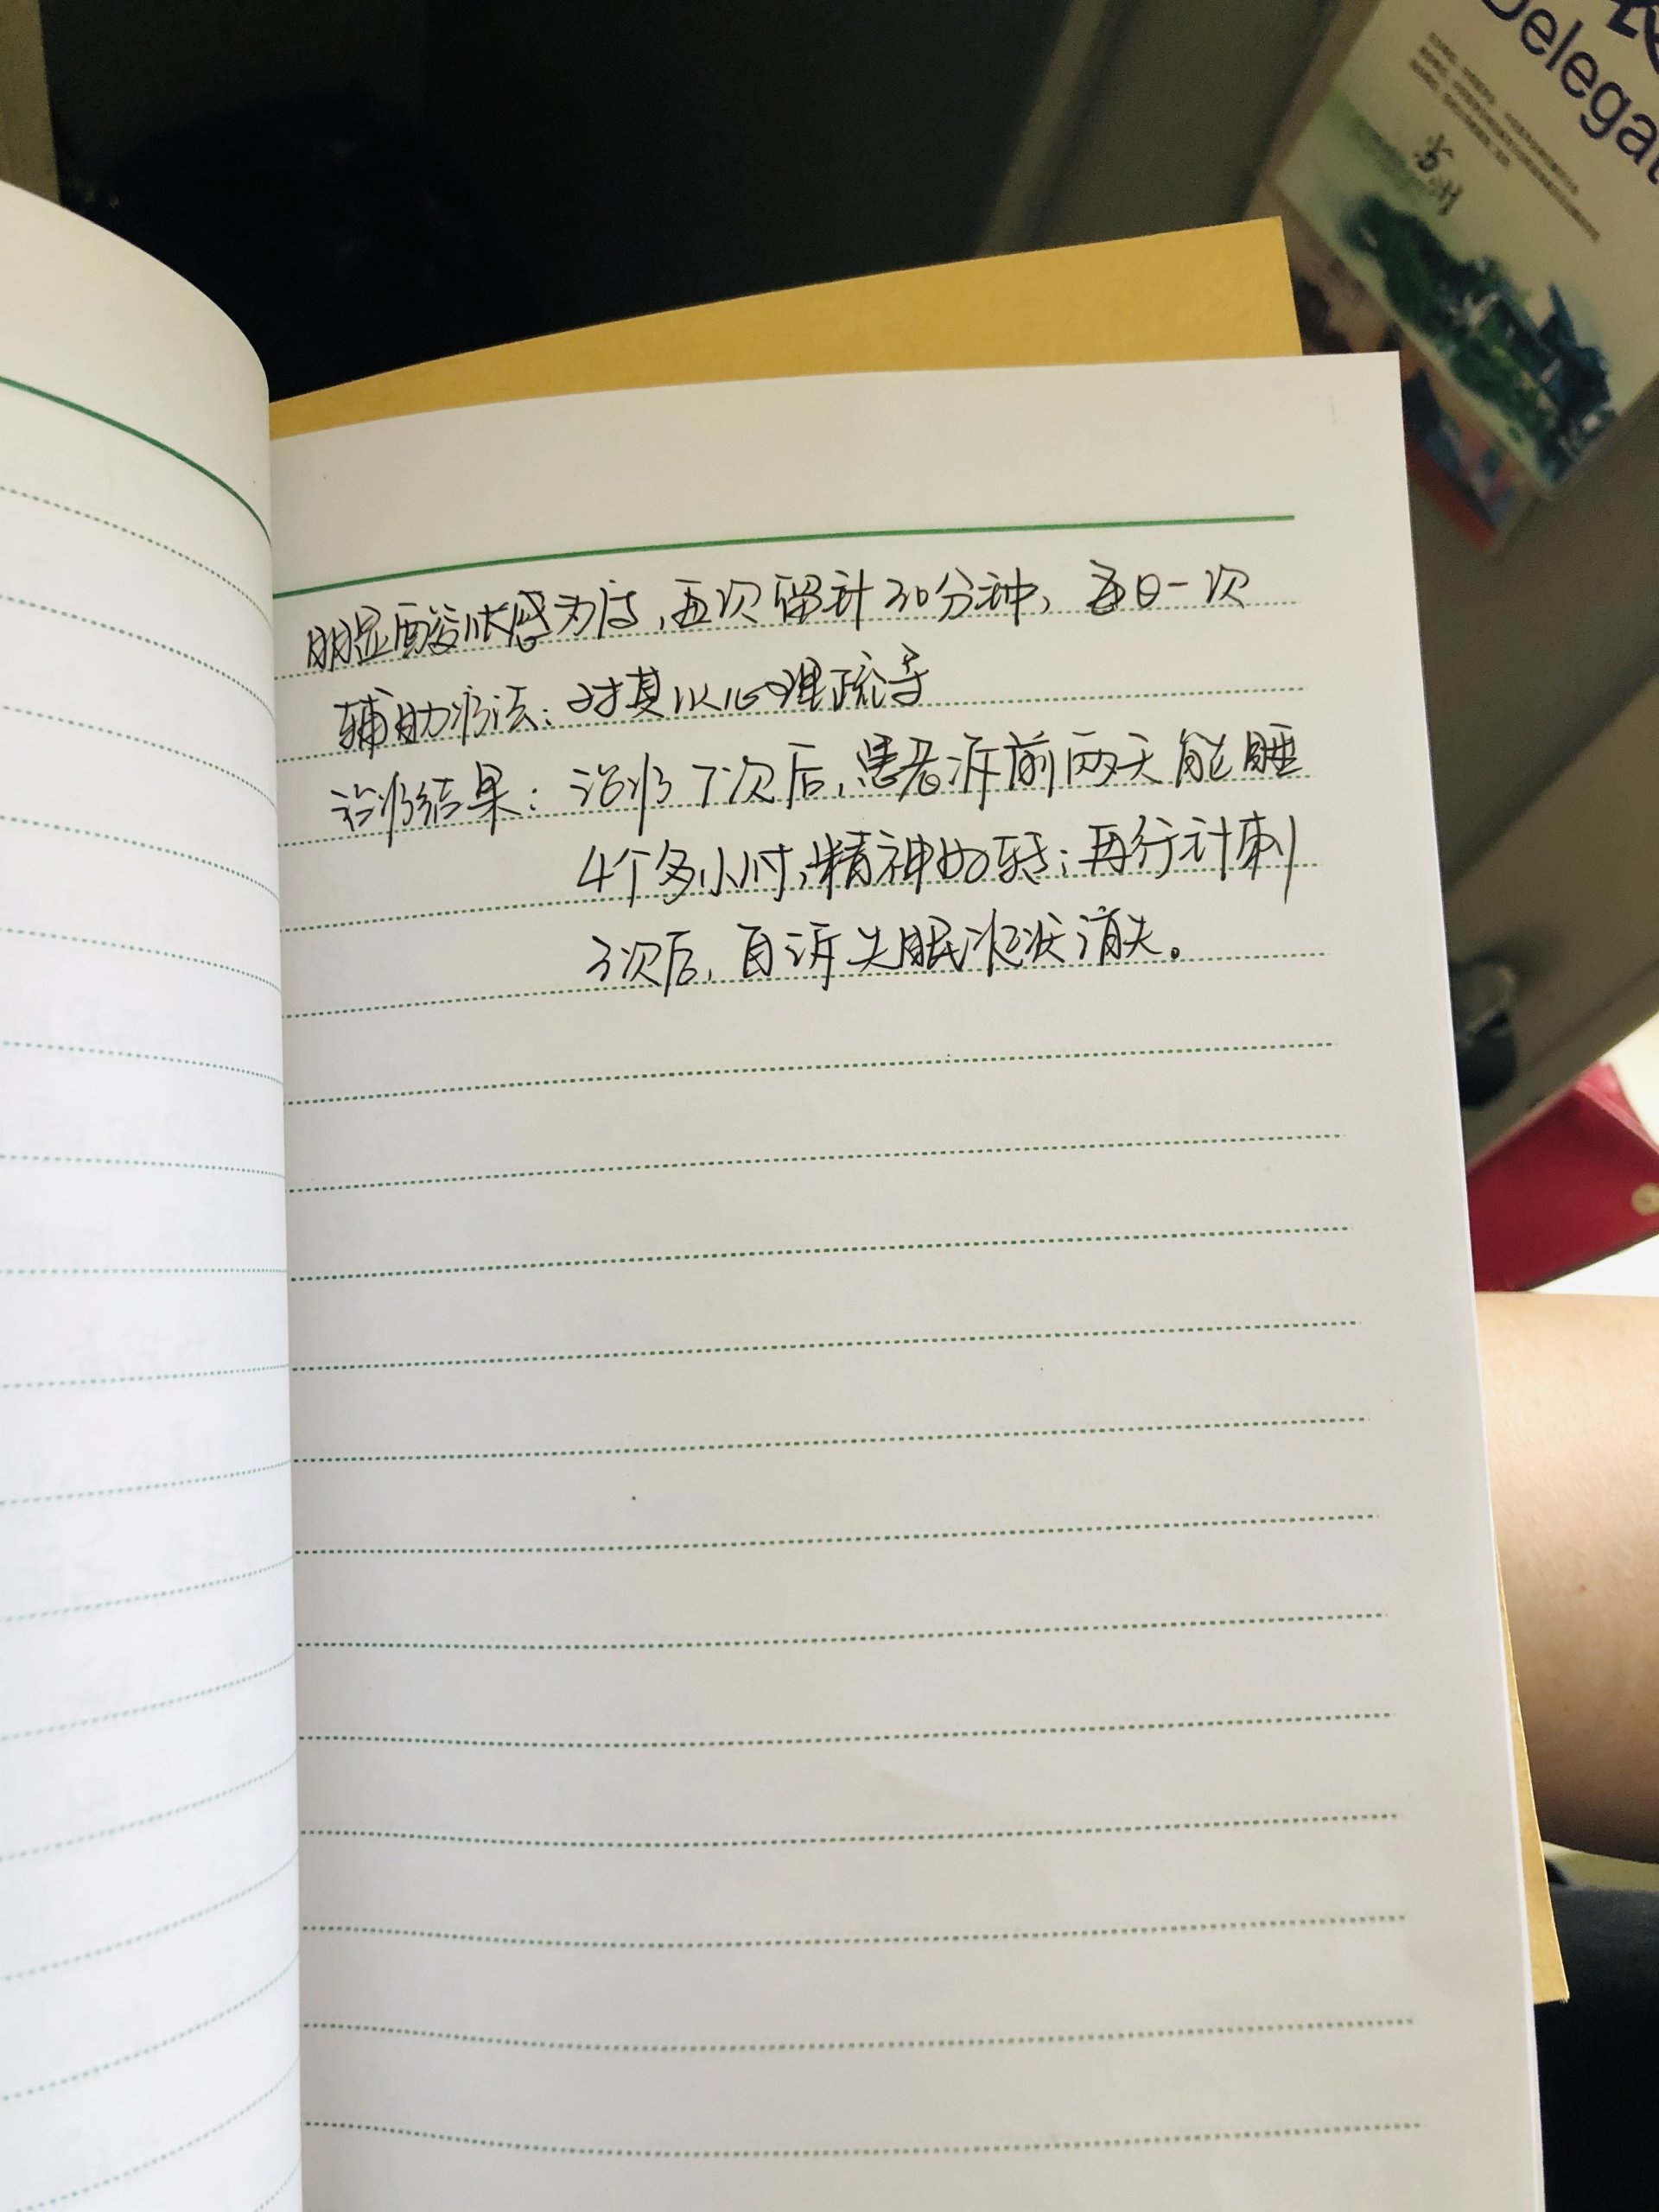 明显酸胀感为度，再次留针30分钟，每日一次
辅助疗法：对其以心理疏导
诊疗结果：治疗7次后，患者诉前两天能睡
4个多小时，精神好转；再行针刺
3次后，自诉失眠症状消失。
Delegat